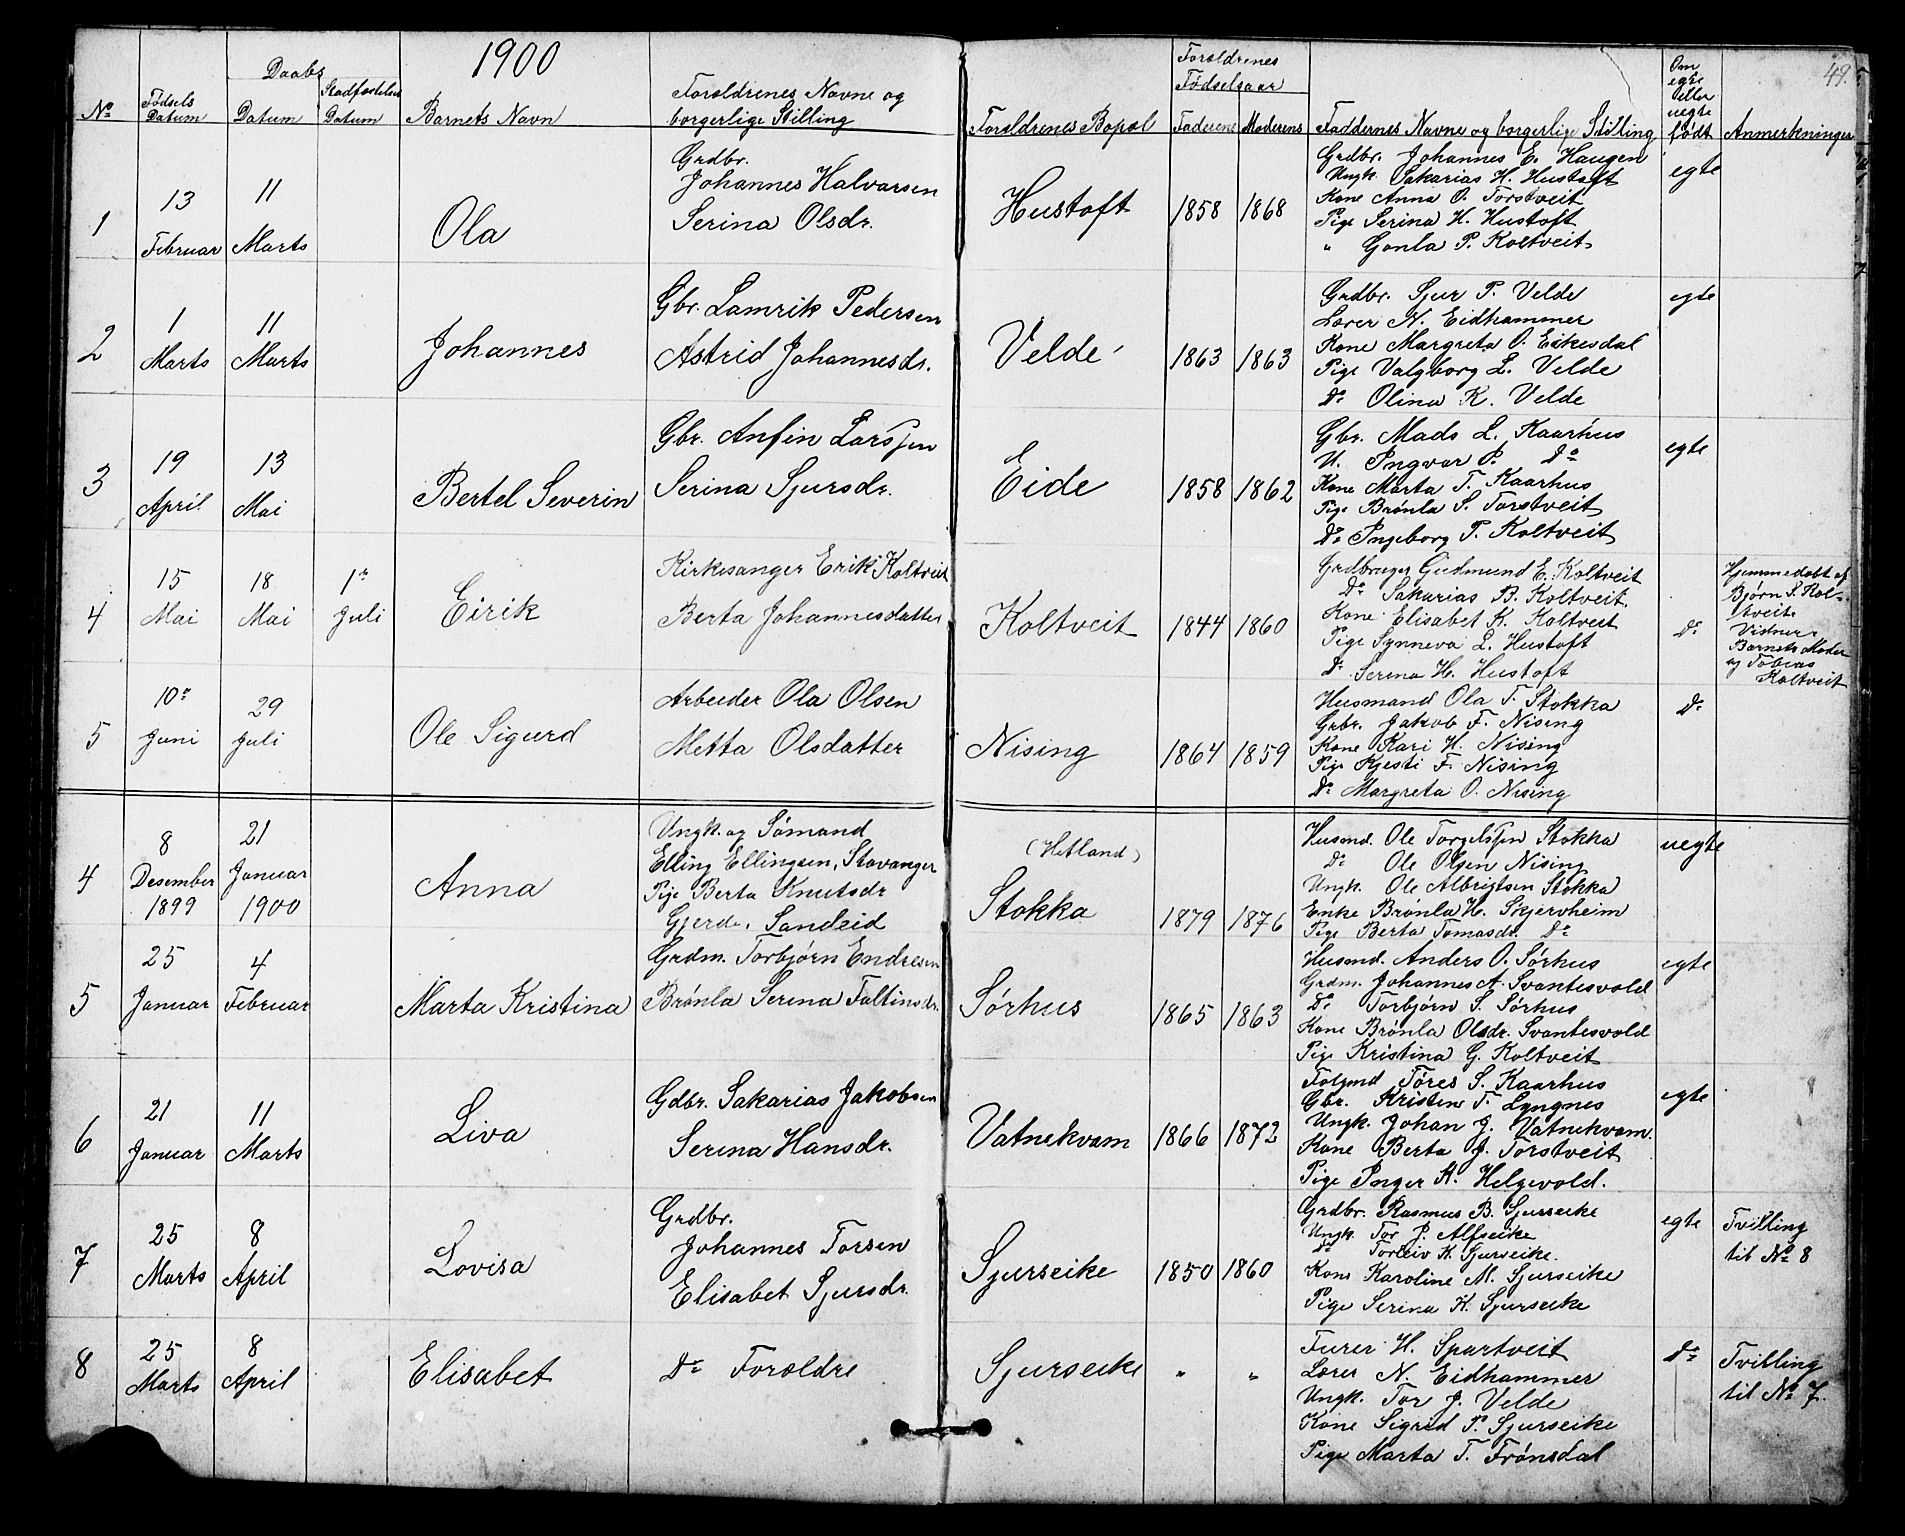 1900
49.
No
Fødsels Datum
Daabs Datum
Stadfæstelses Datum
Barnets Navn
Forældrenes Navne og borgerlige Stilling
Forældrenes Bopæl
Forældrenes Fødselsaar
Faderens
Moderens
Faddernes Navne og borgerlige Stilling
Om egte eller uegte født
Anmerkninger
1
13 Februar
11 Marts
Ola
Grdbr.
Johannes Halvarsen
Serina Olsdr.
Hustoft
1858
1868
Grdbr. Johannes E. Haugen
Ungk. Sakarias H. Hustoft
Kone Anna O. Torstveit
Pige Serina H. Hustoft
" Gonla P. Koltveit
egte
2
1 Marts
11 Marts
Johannes
Gbr. Lamrik Pedersen
Astrid Johannesdr.
Velde
1863
1863
Grdbr. Sjur P. Velde
Lærer N. Eidhammer
Kone Margreta O. Eikesdal
Pige Valgborg L. Velde
Do Olina K. Velde
egte
3
19 April
13 Mai
Bertel Severin
Gbr. Anfin Larssen
Serina Sjursdr.
Eide
1858
1862
Gbr. Mads L. Kaarhus
U. Ingvar P. Do
Kone Marta T. Kaarhus
Pige Brønla S. Torstveit
Do Ingeborg P. Koltveit
egte
4
15 Mai
18 Mai
1ste Juli
Eirik
Kirkesanger Erik Koltveit
Berta Johannesdatter
Koltveit
1844
1860
Grdbruger Gudmund E. Koltveit
Do Sakarias B. Koltveit
Kone Elisabet K. Koltveit
Pige Synneva L. Hustoft
Do Serina H. Hustoft
Do
Hjemmedøbt af
Bjørn S. Kol-
tveit.
Vidner:
Barnets Moder
og Tobias
Koltveit
5
10de Juni
29 Juli
Ole Sigurd
Arbeider Ola Olsen
Metta Olsdatter
Nising
1864
1859
Husmand Ola T. Stokka
Grbr. Jakob F. Nising
Kone Kari H. Nising
Pige Kjesti F. Nising
Do Margreta O. Nising
Do
4
8 Desember 1899
21 Januar 1900
Anna
Ungk. og Sømand
Elling Ellingsen, Stavanger
Pige Berta Knutsdr
Gjerde, Sandeid
(Hetland)
Stokka
1879
1876
Husmd. Ole Torgelssen Stokka
Do Ole Olsen Nising
Ungk. Ole Albrigtsen Stokka
Enke Brønla H. Skjervheim
Pige Berta Tomasdr. Do
uegte
5
25 Januar
4 Februar
Marta Kristina
Grdm. Torbjørn Endresen
Brønla Serina Faltinsdr.
Sørhus
1865
1863
Husmd. Anders O. Sørhus
Grdm. Johannes A. Svantesvold
Do Torbjørn S. Sørhus
Kone Brønla Olsdr. Svantesvold
Pige Kristina G. Koltveit
egte
6
21 Januar
11 Marts
Liva
Gdbr. Sakarias Jakobsen
Serina Hansdr.
Vatnekvam
1866
1872
Følgmd Tøres S. Kaarhus
Gbr. Kristen T. Lyngnes
Ungk. Johan J. Vatnekvam
Kone Berta J. Torstveit
Pige Inger H. Helgevold.
egte
7
25 Marts
8 April
Lovisa
Grdbr.
Johannes Torsen
Elisabet Sjursdr.
Sjurseike
1850
1860
Grdbr. Rasmus B. Sjurseike
Ungk. Tor J. Alfseike
Do Torleiv K. Sjurseike
Kone Karoline M. Sjurseike
Pige Serina K. Sjurseike
egte
Tvilling
til No 8
8
25 Marts
8 April
Elisabet
Do Forældre
Sjurseike
"
"
Furer H. Spartveit
Lærer N. Eidhammer
Ungk. Tor J. Velde
Kone Sigrid P. Sjurseike
Pige Marta T. Frønsdal
Do
Tvilling
til No 7.